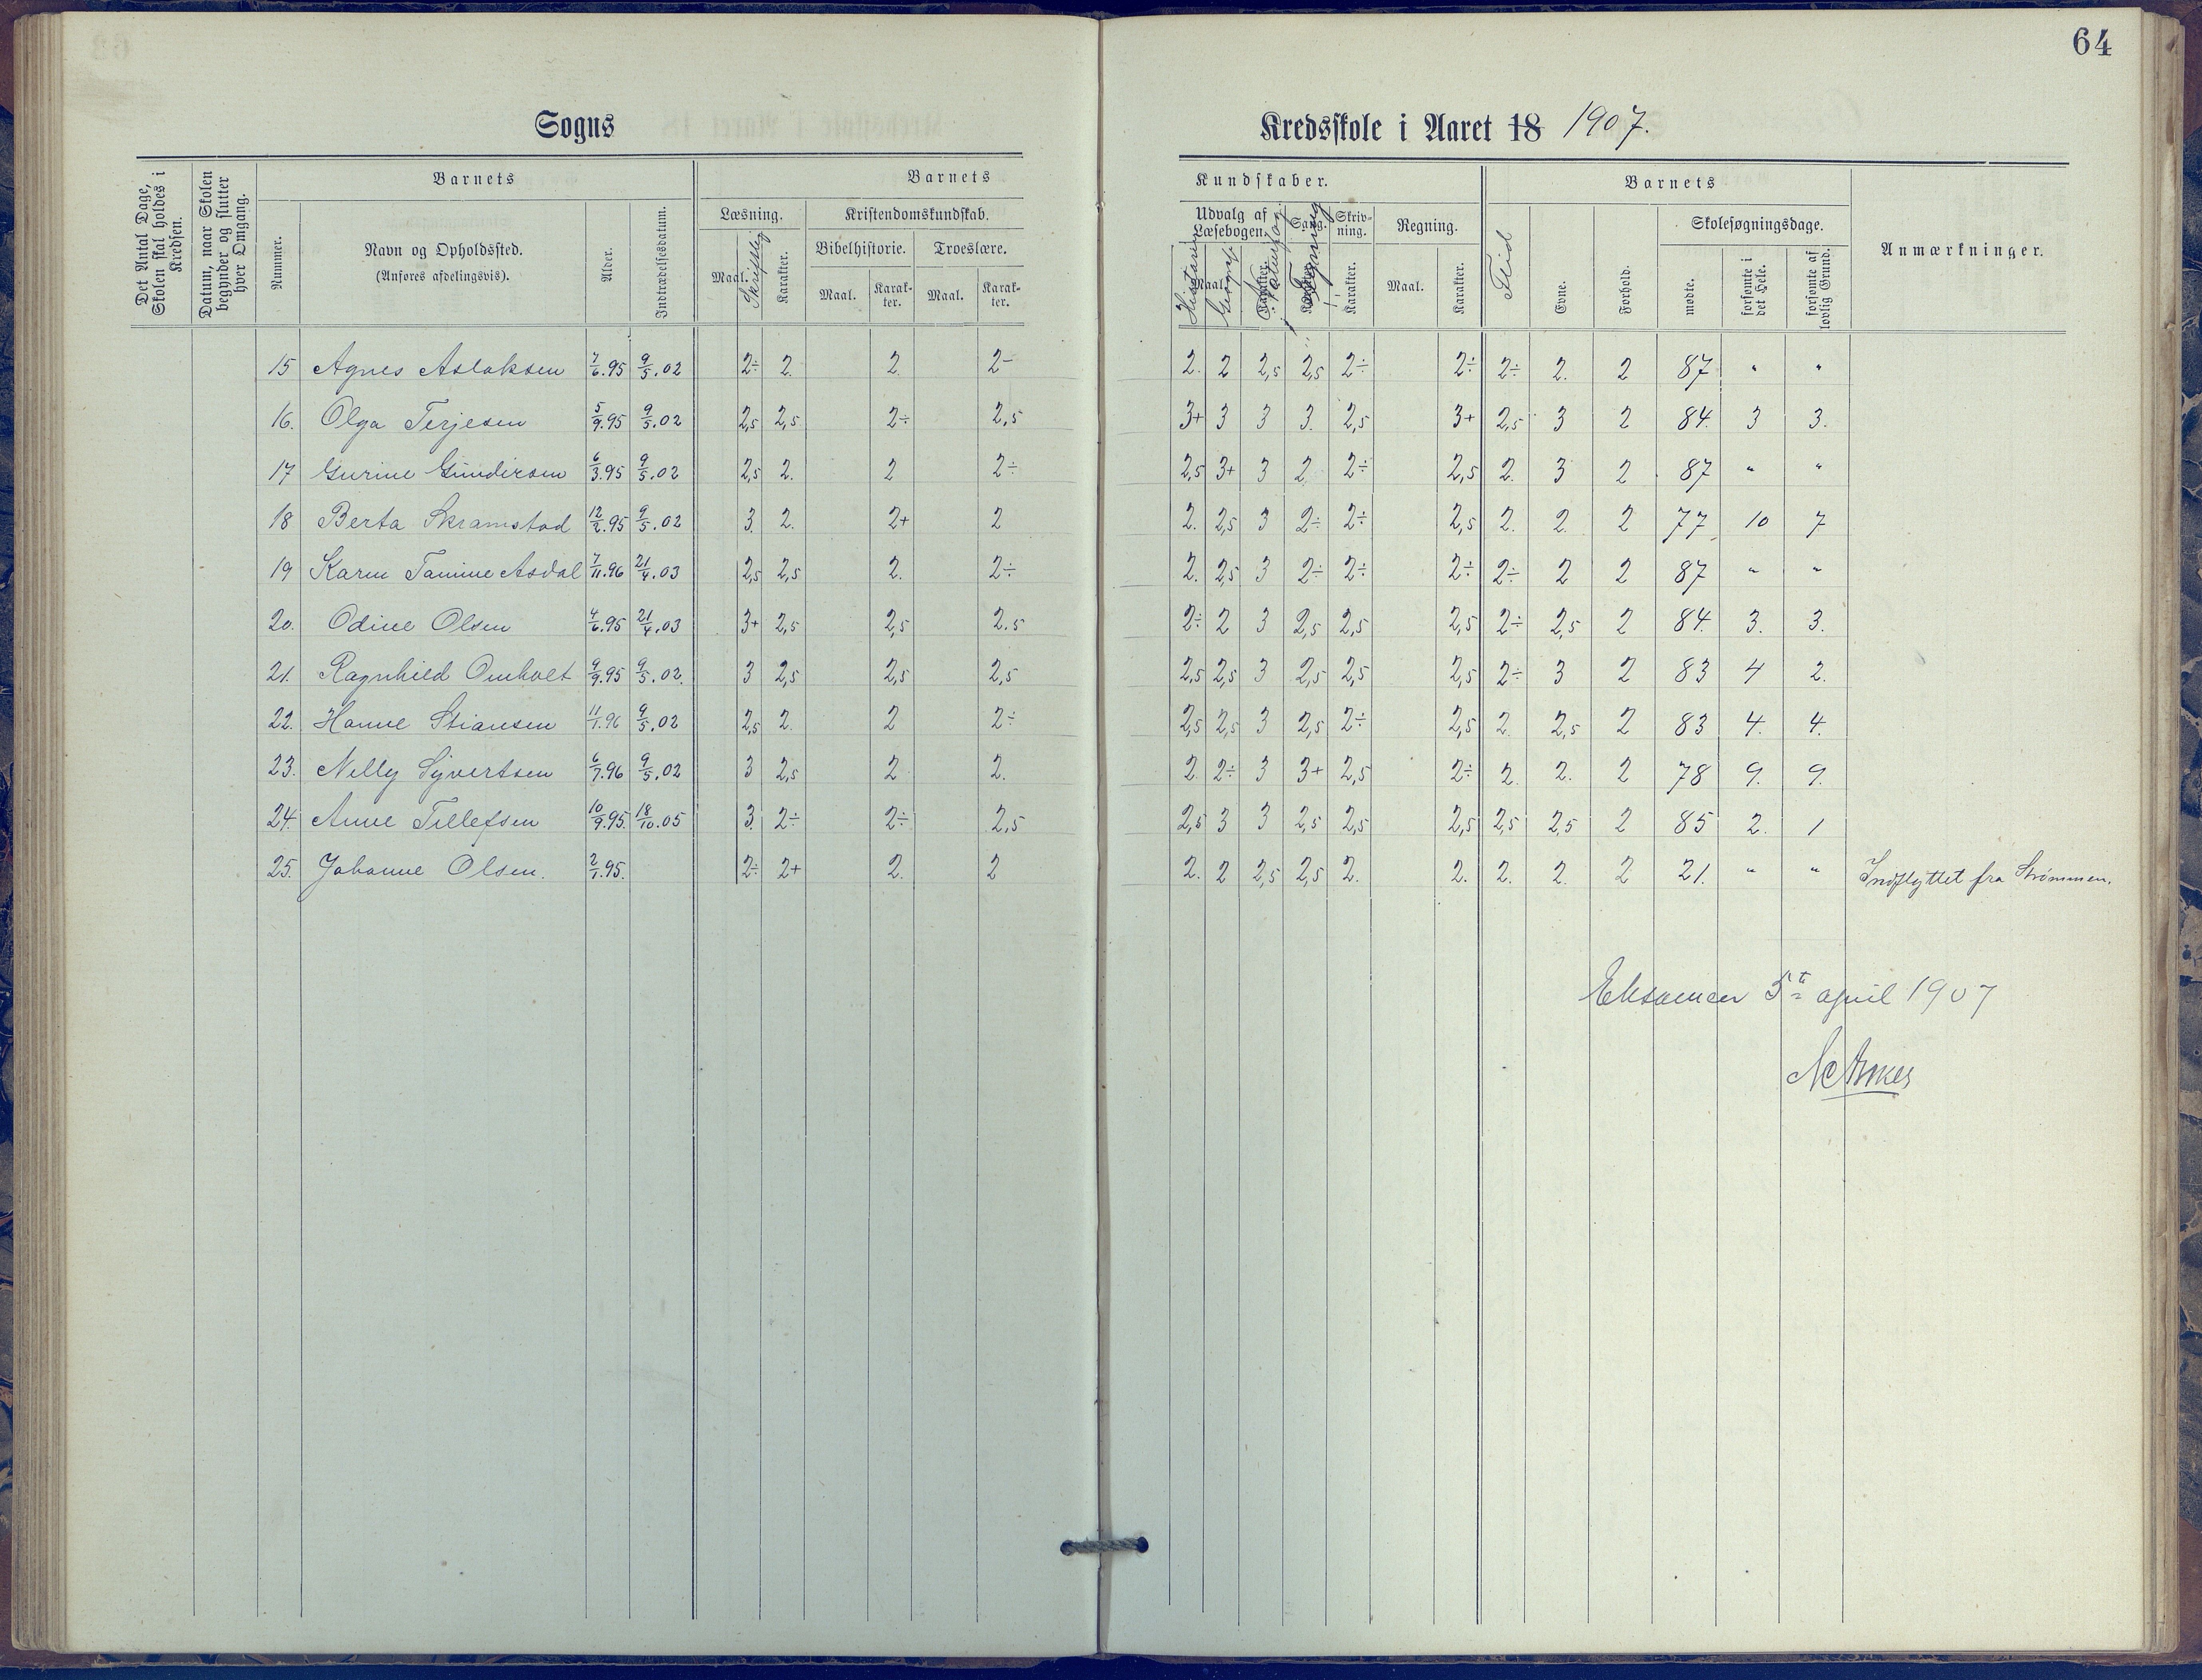 64
Sogns
Kredsskole i Aaret 18 1907.
Det Antal Dage, Skolen skal holdes i Kredsen.
Datum, naar Skolen begynder og slutter hver Omgang.
Barnets
Nummer.
Navn og Opholdssted.
(Anføres afdelingsvis).
Alder.
Indtrædelsesdatum.
Barnets
Læsning.
Maal.
Skriftlig
Karakter.
Kristendomskundskab.
Bibelhistorie.
Troeslære.
Maal.
Karakter.
Maal.
Karakter.
Kundskaber.
Udvalg af Læsebogen.
Maal.
Historie
Geografi
Karakter.
Naturfag
Sang.
Karakter.
Tegning
Skrivning.
Karakter.
Regning.
Maal.
Karakter.
Barnets
Flid
Evne.
Forhold.
Skolesøgningsdage.
mødte.
forsømte i det Hele.
forsømte af lovlig Grund.
Anmærkninger.
15 Agnes Aslaksen 7/6.95 9/5.02 2÷ 2. 2. 2- 2. 2 2,5 2,5 2÷ 2÷ 2÷ 2. 2 87 " "
16. Olga Terjesen 5/9.95 9/5.02 2,5 2,5 2÷ 2,5 3+ 3 3 3. 2,5 3+ 2,5 3 2 84. 3 3.
17 Gurine Gundersen 6/3.95 9/5.02 2,5 2. 2 2÷ 2,5 3+ 3 2 2÷ 2,5 2. 3 2 87 " "
18 Berta Skramstad 12/2.95 9/5.02 3. 2. 2+ 2 2. 2,5 3 2÷ 2÷ 2,5 2. 2. 2 77 10 7
19 Karen Tomine Asdal 7/11.96 21/4.03 2,5 2,5 2. 2÷ 2. 2,5 3 2÷ 2÷ 2÷ 2÷ 2 2 87 " "
20. Odine Olsen 4/6.95 21/4.03 3+ 2,5 2,5 2.5 2÷ 2 3 2,5 2,5 2,5 2÷ 2,5 2 84. 3. 3.
21. Ragnhild Omholt 9/9.95 9/5.02. 3 2,5 2,5 2,5 2,5 2,5 3 2,5 2,5 2,5 2÷ 3 2 83 4 2.
22. Hanne Stiansen 11/1.96 9/5.02 2,5 2. 2 2÷ 2,5 2,5 3 2,5 2÷ 2,5 2. 2,5 2 83 4. 4.
23. Nelly Syvertsen 6/7.96 9/5.02 3 2,5 2 2. 2. 2÷ 3 3+ 2,5 2÷ 2. 2. 2 78 9. 9.
24. Anne Tellefsen 10/9.95. 18/10.05 3. 2÷ 2÷ 2,5 2,5 3 3 2,5 2,5 2,5 2,5 2,5 2 85 2. 1
25. Johanne Olsen. 2/1.95. 2÷ 2+ 2. 2 2. 2 2,5 2,5 2. 2. 2. 2. 2 21. " " Indflyttet fra Strømmen.
Eksamen 5te april 1907